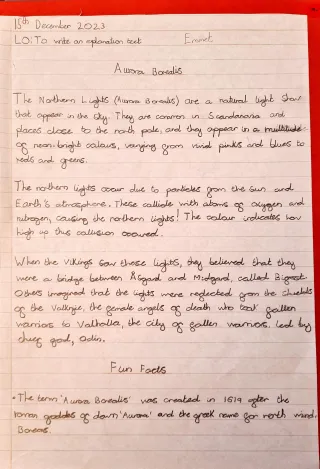 15th December 2023
LO: To write an explanation text Emmet
Aurora Borealis
The Northern Lights (Aurora Borealis) are a natural light show
that appear in the sky. They are common in Scandanavia and
places close to the north pole, and they appear in a multitude
of neon bright colours, varying from vivid pinks and blues to
reds and greens.
The northern lights occur due to particles from the sun and
Earth's atmosphere. These collide with atoms of oxygen and
nitrogen, causing the northern lights! The colour indicates how
high up this collision occured.
When the vikings saw these lights, they believed that they
were a bridge between Asgard and Midgard, called Bigrost
Others imagined that the lights were reglected from the shields
of the Valkyrie, the female angels of death who took fallen
warriors to Valhalla, the city of fallen warriors. Led by
chief god, Odin.
Fun Facts
• The term 'Aurora Borealis' was created in 1619 after the
roman goddess of dawn 'Aurora' and the greek name for north wind.
Boreas.